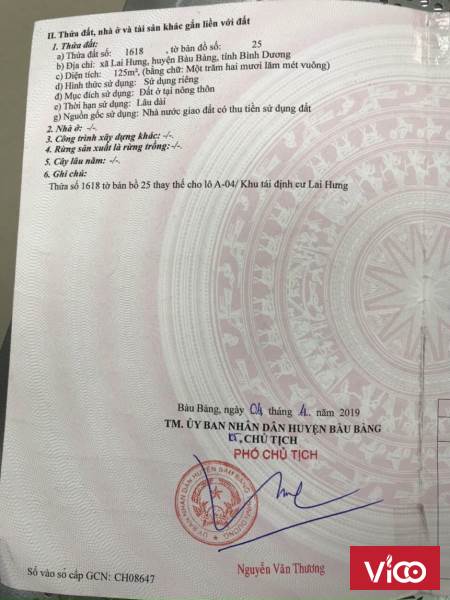 II. Thửa đất, nhà ở và tài sản khác gắn liền với đất
1. Thửa đất:
a) Thửa đất số: 1618 , tờ bản đồ số: 25
b) Địa chỉ: xã Lai Hưng, huyện Bàu Bàng, tỉnh Bình Dương
c) Diện tích: 125m², (bằng chữ: Một trăm hai mươi lăm mét vuông)
d) Hình thức sử dụng: Sử dụng riêng
đ) Mục đích sử dụng: Đất ở tại nông thôn
e) Thời hạn sử dụng: Lâu dài
g) Nguồn gốc sử dụng: Nhà nước giao đất có thu tiền sử dụng đất
2. Nhà ở: -/-.
3. Công trình xây dựng khác: -/-.
4. Rừng sản xuất là rừng trồng: -/-.
5. Cây lâu năm: -/-.
6. Ghi chú:
Thửa số 1618 tờ bản bồ 25 thay thế cho lô A-04/ Khu tái định cư Lai Hưng
Bàu Bàng, ngày 04 tháng 4 năm 2019
TM. ỦY BAN NHÂN DÂN HUYỆN BÀU BÀNG
KT. CHỦ TỊCH
PHÓ CHỦ TỊCH
ỦY BAN NHÂN DÂN HUYỆN BÀU BÀNG
Nguyễn Văn Thương
Số vào sổ cấp GCN: CH08647
Vico